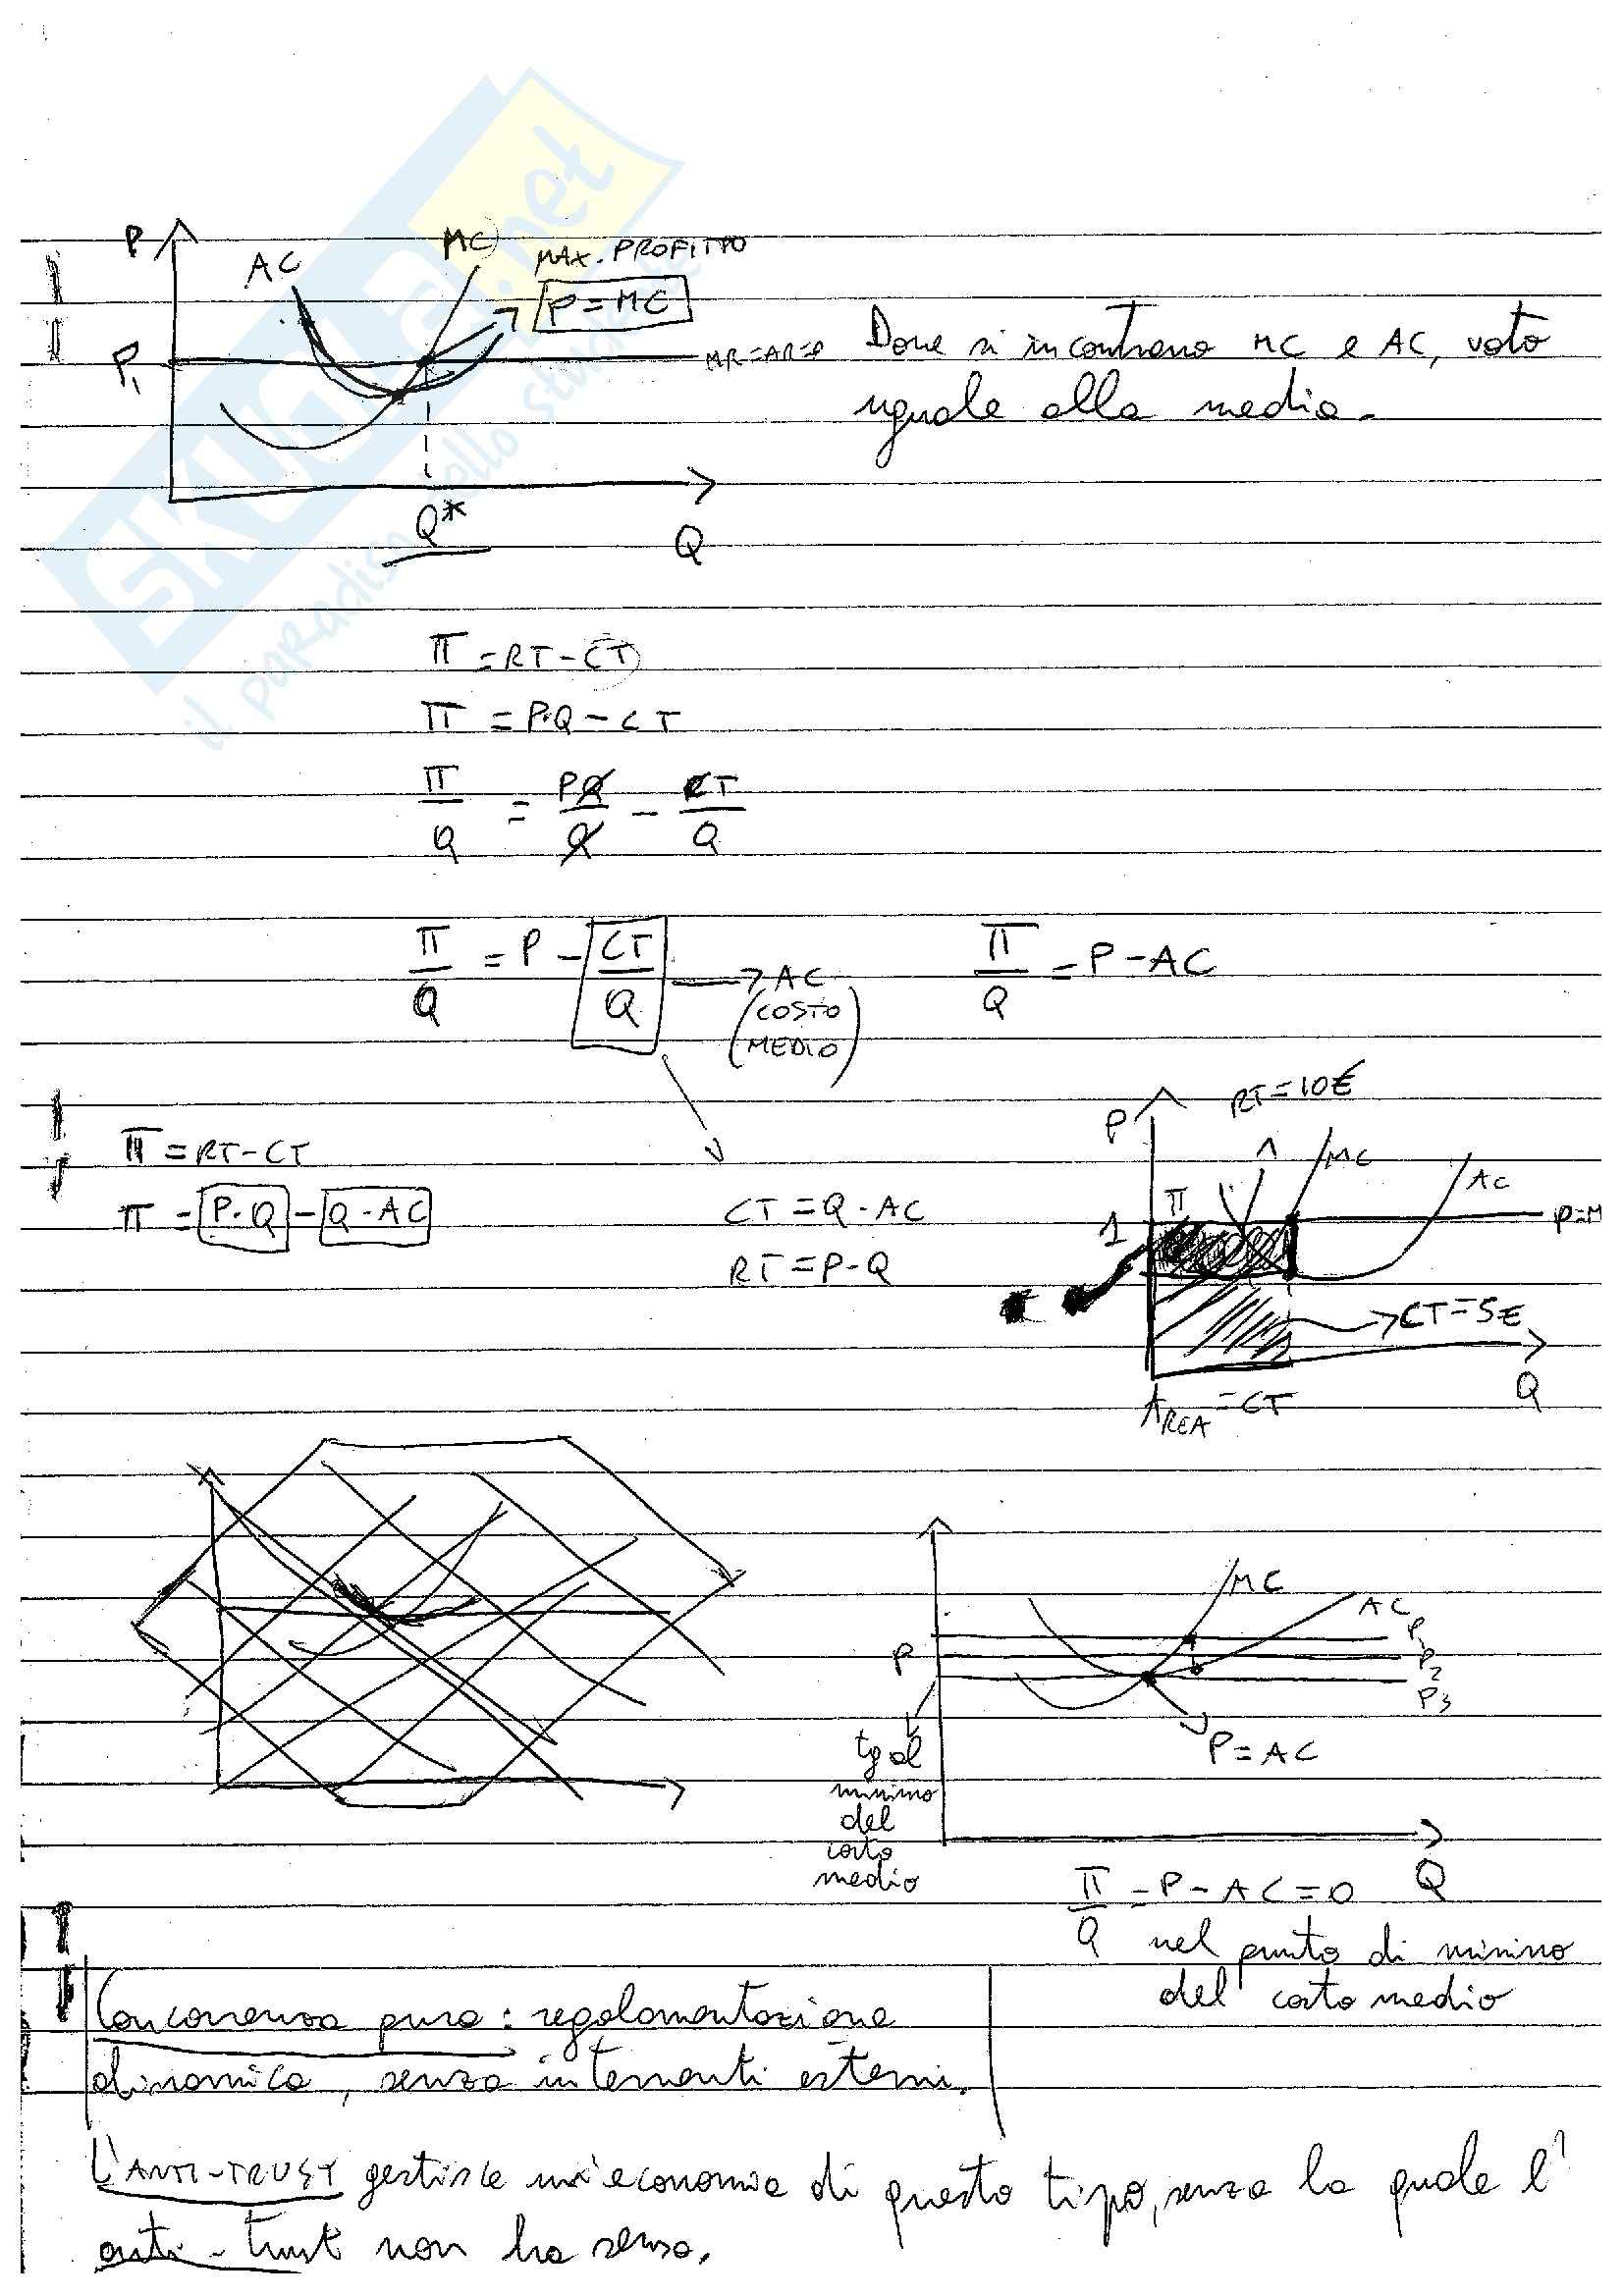 SKUOLA.net
il paradiso dello studente
P
AC
MC
MAX. PROFITTO
P=MC
P1
MR=AR=P
Dove si incontrano MC e AC, voto
uguale alla media.
Q*
Q
π=RT-CT
π=P·Q-CT
π/Q = PQ/Q - CT/Q
π/Q = P - CT/Q → AC
(COSTO
MEDIO)
π/Q = P-AC
π=RT-CT
π=P·Q-Q·AC
CT=Q·AC
RT=P·Q
RT=10€
P
π
MC
AC
1
P=M
CT=5€
Q
AREA=CT
MC
AC
P
P1
P2
P3
P=AC
tg al
minimo
del
costo
medio
Q
π/Q = P-AC=0
nel punto di minimo
del costo medio
Concorrenza pura: regolamentazione
dinamica, senza interventi esterni.
L'ANTI-TRUST gestisce un'economia di questo tipo, senza la quale l'
anti-trust non ha senso.